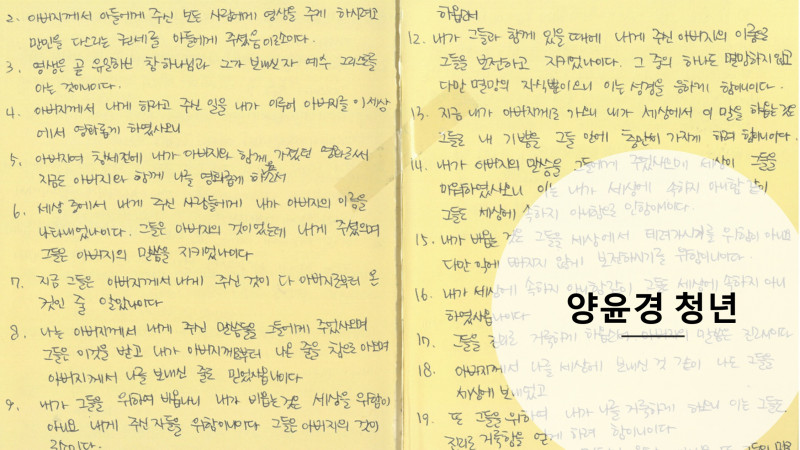 2. 아버지께서 아들에게 주신 모든 사람에게 영생을 주게 하시려고
만민을 다스리는 권세를 아들에게 주셨음이로소이다.
3. 영생은 곧 유일하신 참 하나님과 그가 보내신 자 예수 그리스도를
아는 것이니이다.
4. 아버지께서 내게 하라고 주신 일을 내가 이루어 아버지를 이 세상
에서 영화롭게 하였사오니
5. 아버지여 창세전에 내가 아버지와 함께 가졌던 영화로써
지금도 아버지와 함께 나를 영화롭게 하옵소서
6. 세상 중에서 내게 주신 사람들에게 내가 아버지의 이름을
나타내었나이다. 그들은 아버지의 것이었는데 내게 주셨으며
그들은 아버지의 말씀을 지키었나이다
7. 지금 그들은 아버지께서 내게 주신 것이 다 아버지로부터 온
것인 줄 알았나이다
8. 나는 아버지께서 내게 주신 말씀들을 그들에게 주었사오며
그들은 이것을 받고 내가 아버지께로부터 나온 줄을 참으로 아오며
아버지께서 나를 보내신 줄도 믿었사옵나이다
9. 내가 그들을 위하여 비옵나니 내가 비옵는 것은 세상을 위함이
아니요 내게 주신 자들을 위함이니이다 그들은 아버지의 것이
로소이다.
하옵소서
12. 내가 그들과 함께 있을 때에 내게 주신 아버지의 이름으로
그들을 보전하고 지키었나이다. 그 중의 하나도 멸망하지 않고
다만 멸망의 자식뿐이오니 이는 성경을 응하게 함이니이다.
13. 지금 내가 아버지께로 가오니 내가 세상에서 이 말을 하옵는 것은
그들로 내 기쁨을 그들 안에 충만히 가지게 하려 함이니이다.
14. 내가 아버지의 말씀을 그들에게 주었사오매 세상이 그들을
미워하였사오니 이는 내가 세상에 속하지 아니함 같이
그들도 세상에 속하지 아니함으로 인함이니이다.
15. 내가 비옵는 것은 그들을 세상에서 데려가시기를 위함이 아니요
다만 악에 빠지지 않게 보전하시기를 위함이니이다.
16. 내가 세상에 속하지 아니함같이 그들도 세상에 속하지 아니
하였사옵나이다
양윤경 청년
17. 그들을 진리로 거룩하게 하옵소서 아버지의 말씀은 진리니이다
18. 아버지께서 나를 세상에 보내신 것 같이 나도 그들을
세상에 보내었고
19. 또 그들을 위하여 내가 나를 거룩하게 하오니 이는 그들도
진리로 거룩함을 얻게 하려 함이니이다.